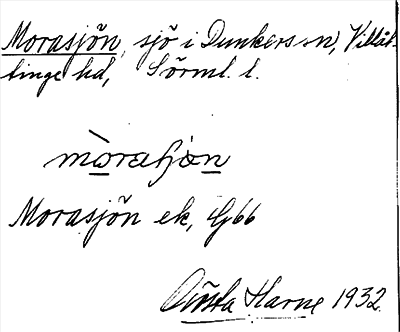 Morasjön, sjö i Dunkers sn, Villåt-
tinge hd, Sörml. l.
Morasjön ek, G66
Gösta Harne 1932.